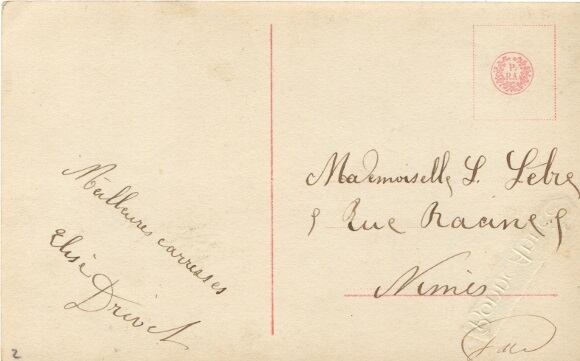 P.
RA.
Meilleures carresses
Elise
Drivet
Mademoiselle S. Lèbre
5 Rue Racine 5
Nimes
2